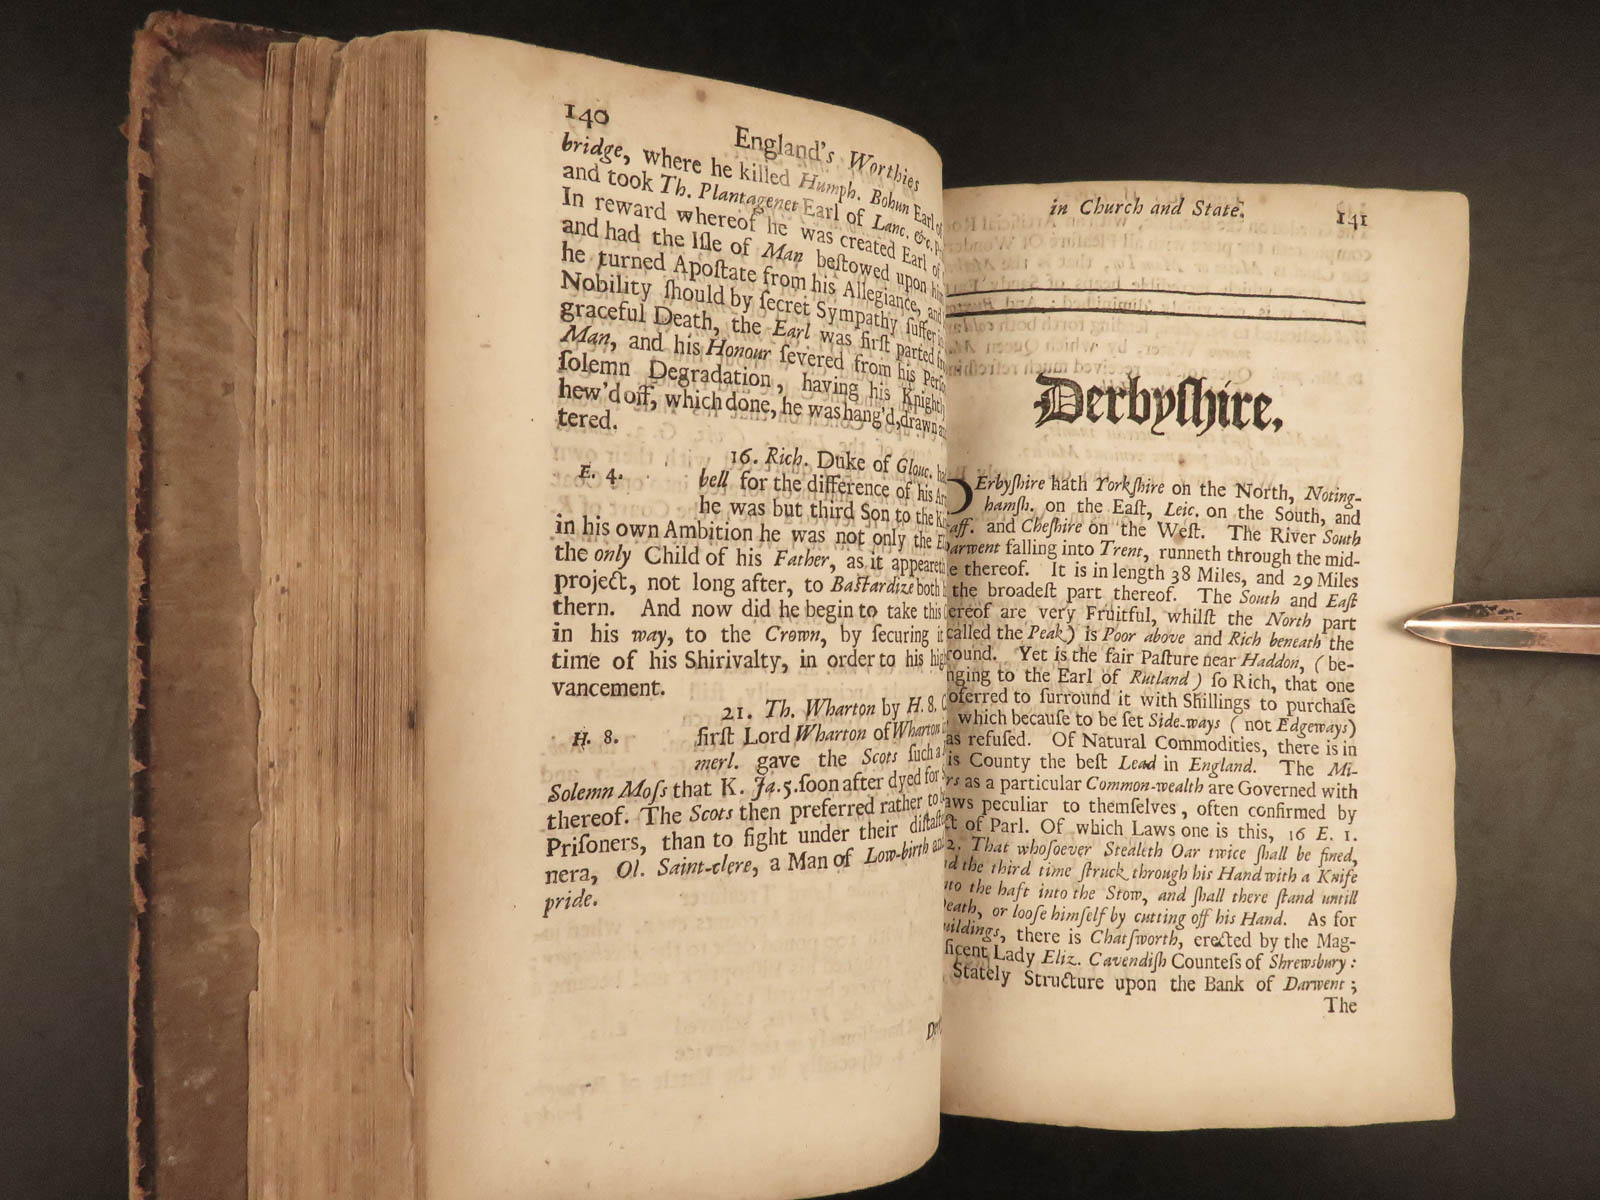 140
England's Worthies
bridge, where he killed Humph. Bohun Earl of
and took Th. Plantagenet Earl of Lanc. &c.
In reward whereof he was created Earl of
and had the Iſle of Man beſtowed upon him
he turned Apoſtate from his Allegiance, and
Nobility ſhould by ſecret Sympathy ſuffer
graceful Death, the Earl was firſt parted
Man, and his Honour ſevered from his
ſolemn Degradation, having his Knightly
hew'd off, which done, he was hang'd, drawn
tered.
E. 4.
16. Rich. Duke of Glouc.
bell for the difference of his
he was but third Son to the
in his own Ambition he was not only the
the only Child of his Father, as it appeareth
project, not long after, to Baſtardize both
thern. And now did he begin to take this
in his way, to the Crown, by ſecuring it
time of his Shirivalty, in order to his
vancement.
H. 8.
21. Th. Wharton by H. 8.
firſt Lord Wharton of Wharton
merl. gave the Scots ſuch a
Solemn Moſs that K. Ja. 5. ſoon after dyed for
thereof. The Scots then preferred rather to
Priſoners, than to fight under their
nera, Ol. Saint-clere, a Man of Low-birth and
pride.
in Church and State.
141
Derbyſhire,
DErbyſhire hath Yorkſhire on the North, Noting-
hamſh. on the Eaſt, Leic. on the South, and
aff. and Cheſhire on the Weſt. The River South
Darwent falling into Trent, runneth through the mid-
e thereof. It is in length 38 Miles, and 29 Miles
the broadeſt part thereof. The South and Eaſt
ereof are very Fruitful, whilſt the North part
(called the Peak) is Poor above and Rich beneath the
round. Yet is the fair Paſture near Haddon, (be-
nging to the Earl of Rutland) ſo Rich, that one
oferred to ſurround it with Shillings to purchaſe
which becauſe to be ſet Side-ways (not Edgeways)
as refuſed. Of Natural Commodities, there is in
is County the beſt Lead in England. The Mi-
rs as a particular Common-wealth are Governed with
aws peculiar to themſelves, often confirmed by
ct of Parl. Of which Laws one is this, 16 E. 1.
2. That whoſoever Stealeth Oar twice ſhall be fined,
nd the third time ſtruck through his Hand with a Knife
nto the haft into the Stow, and ſhall there ſtand untill
Death, or looſe himſelf by cutting off his Hand. As for
uildings, there is Chatſworth, erected by the Mag-
ificent Lady Eliz. Cavendiſh Counteſs of Shrewsbury:
Stately Structure upon the Bank of Darwent;
The